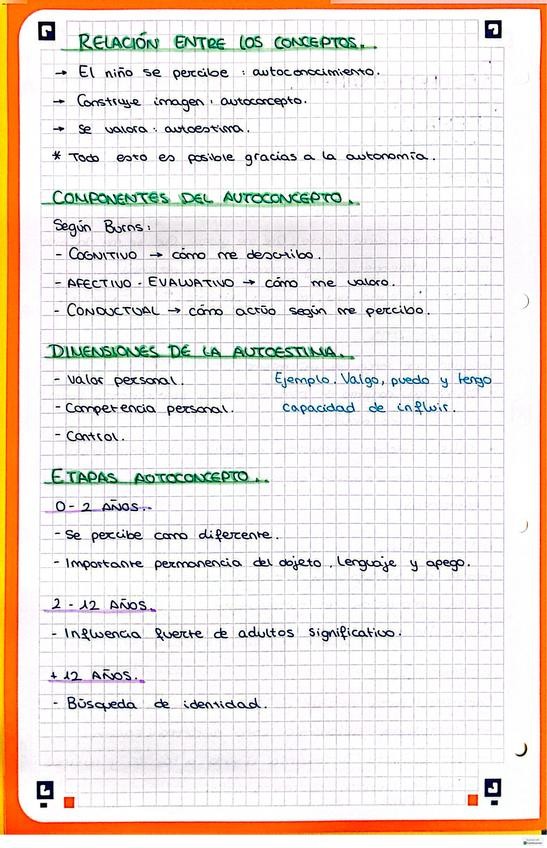 RELACIÓN ENTRE LOS CONCEPTOS.
→ El niño se percibe : autoconocimiento.
→ Construye imagen : autoconcepto.
→ Se valora : autoestima.
* Todo esto es posible gracias a la autonomía.
COMPONENTES DEL AUTOCONCEPTO.
Según Burns:
- COGNITIVO → cómo me describo.
- AFECTIVO - EVALUATIVO → cómo me valoro.
- CONDUCTUAL → cómo actúo según me percibo.
DIMENSIONES DE LA AUTOESTIMA.
- Valor personal.
- Competencia personal.
- Control.
Ejemplo. Valgo, puedo y tengo
capacidad de influir.
ETAPAS AUTOCONCEPTO.
0 - 2 AÑOS.
- Se percibe como diferente.
- Importante permanencia del objeto, lenguaje y apego.
2 - 12 AÑOS.
- Influencia fuerte de adultos significativo.
+ 12 AÑOS.
- Búsqueda de identidad.